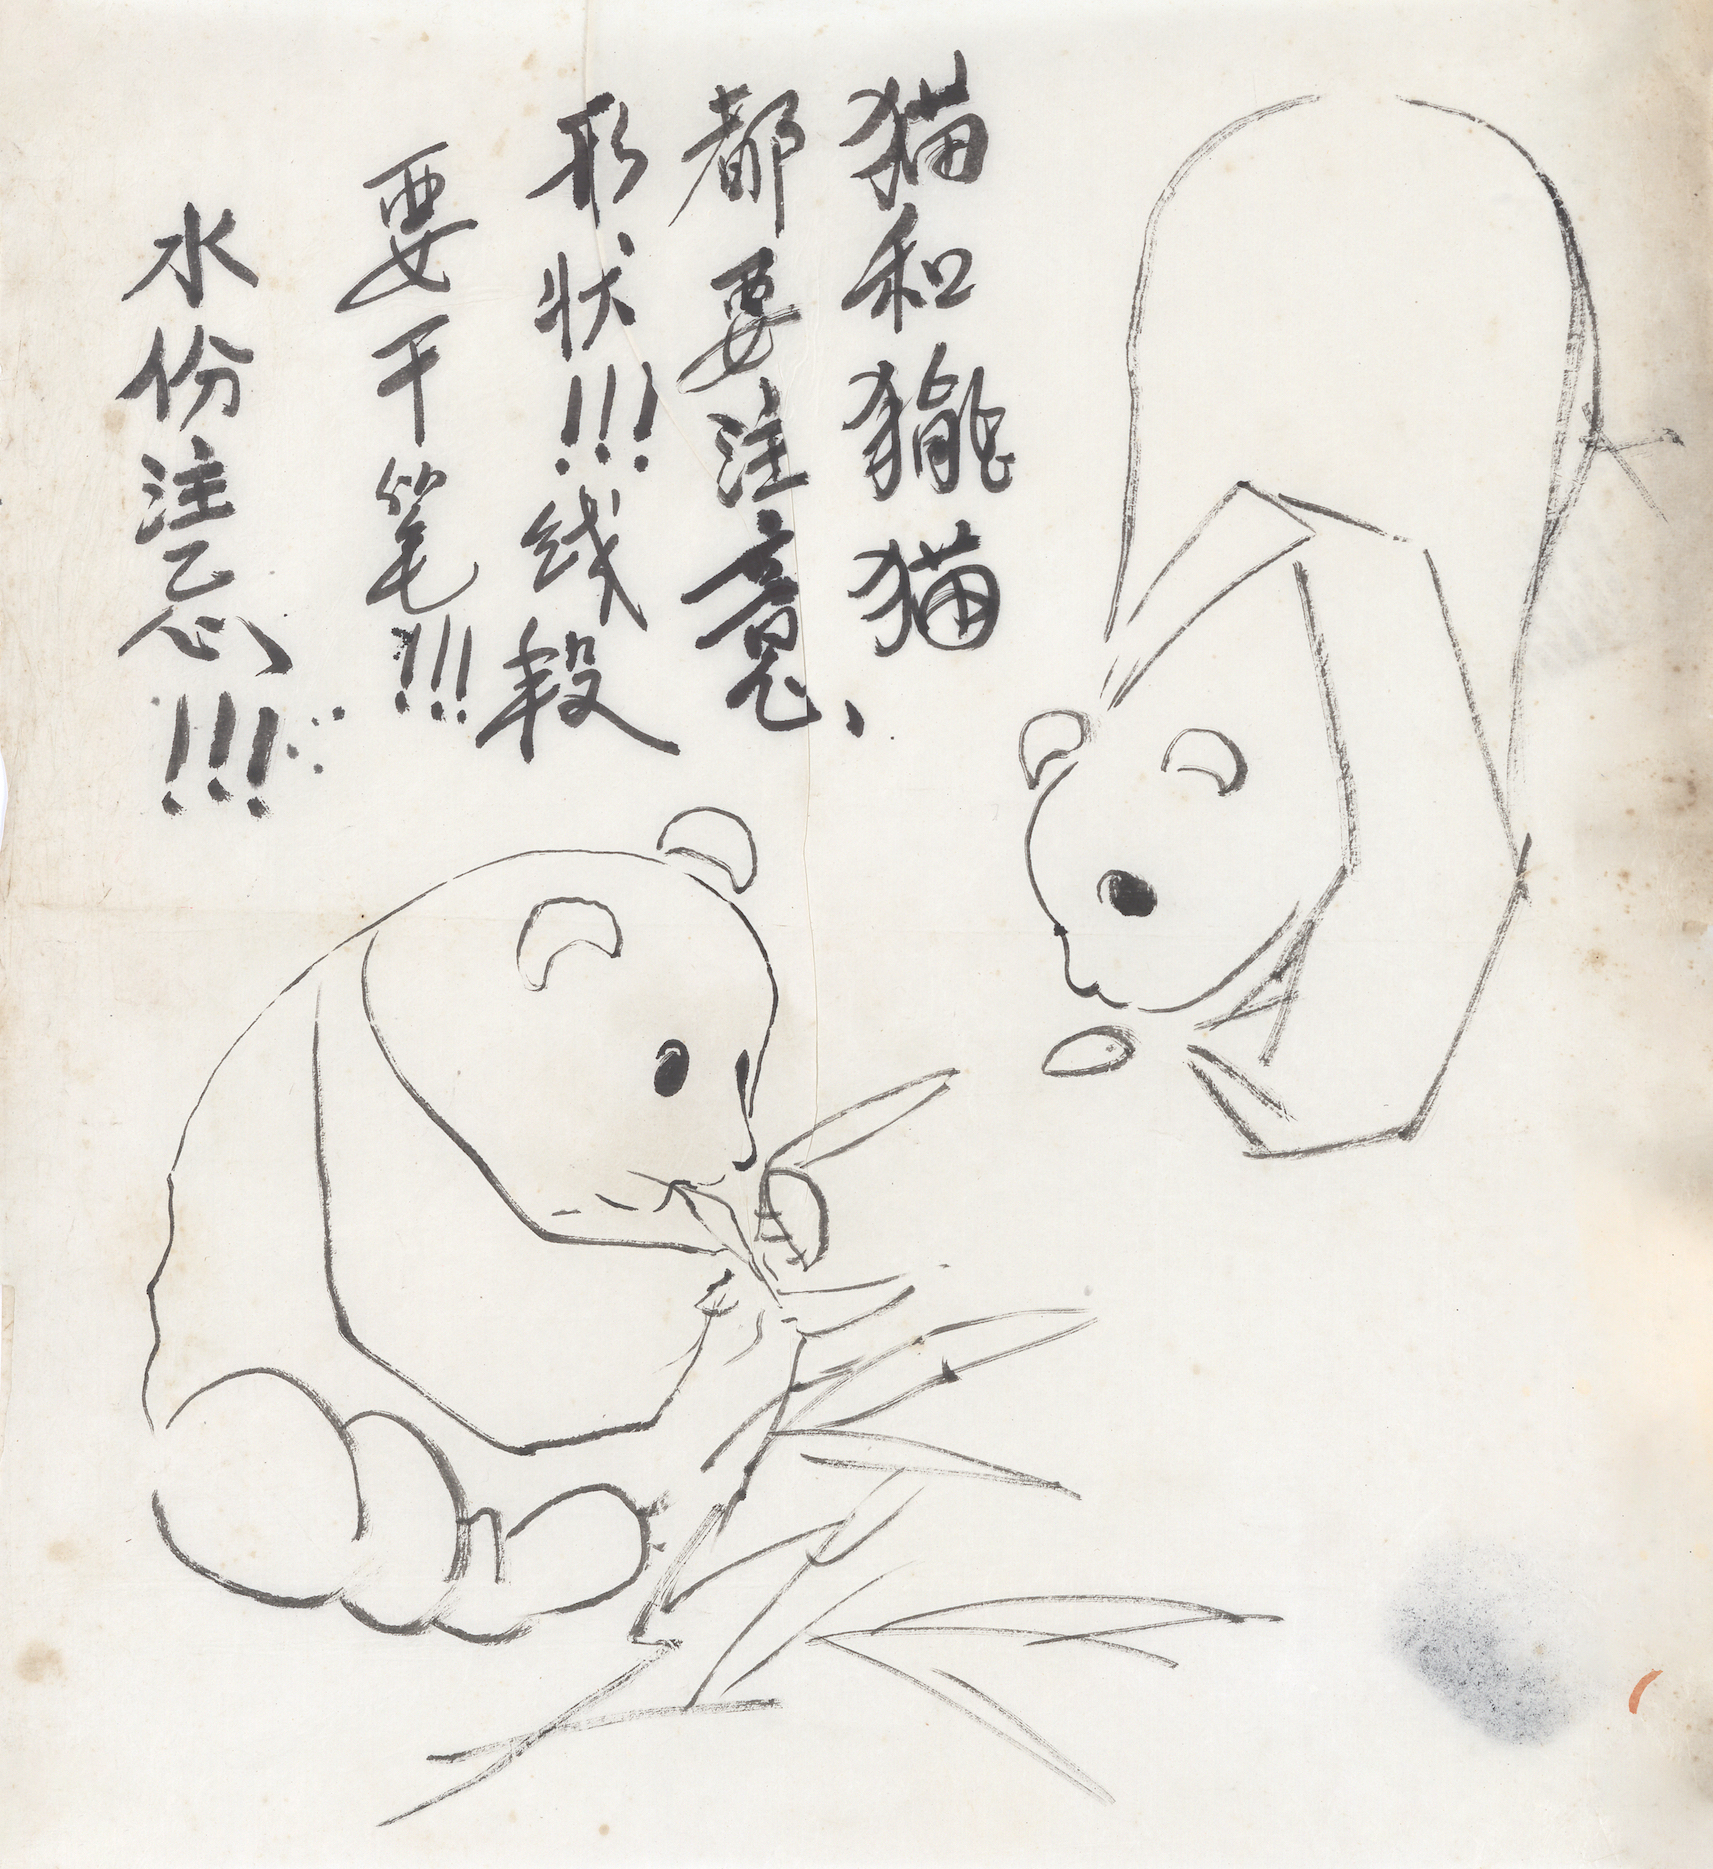 猫和猫
都要注意
形状!!!线段
要干笔!!!
水份注意!!!